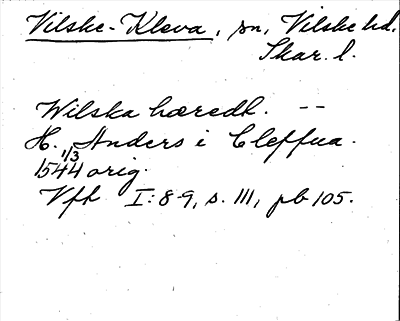 Vilske-Kleva, sn, Vilske hd.
Skar. l.
Wilska hæredh. --
H. Anders i Cleffua.
1544 1/3 orig.
Vfk I: 8-9, s. 111, pb 105.